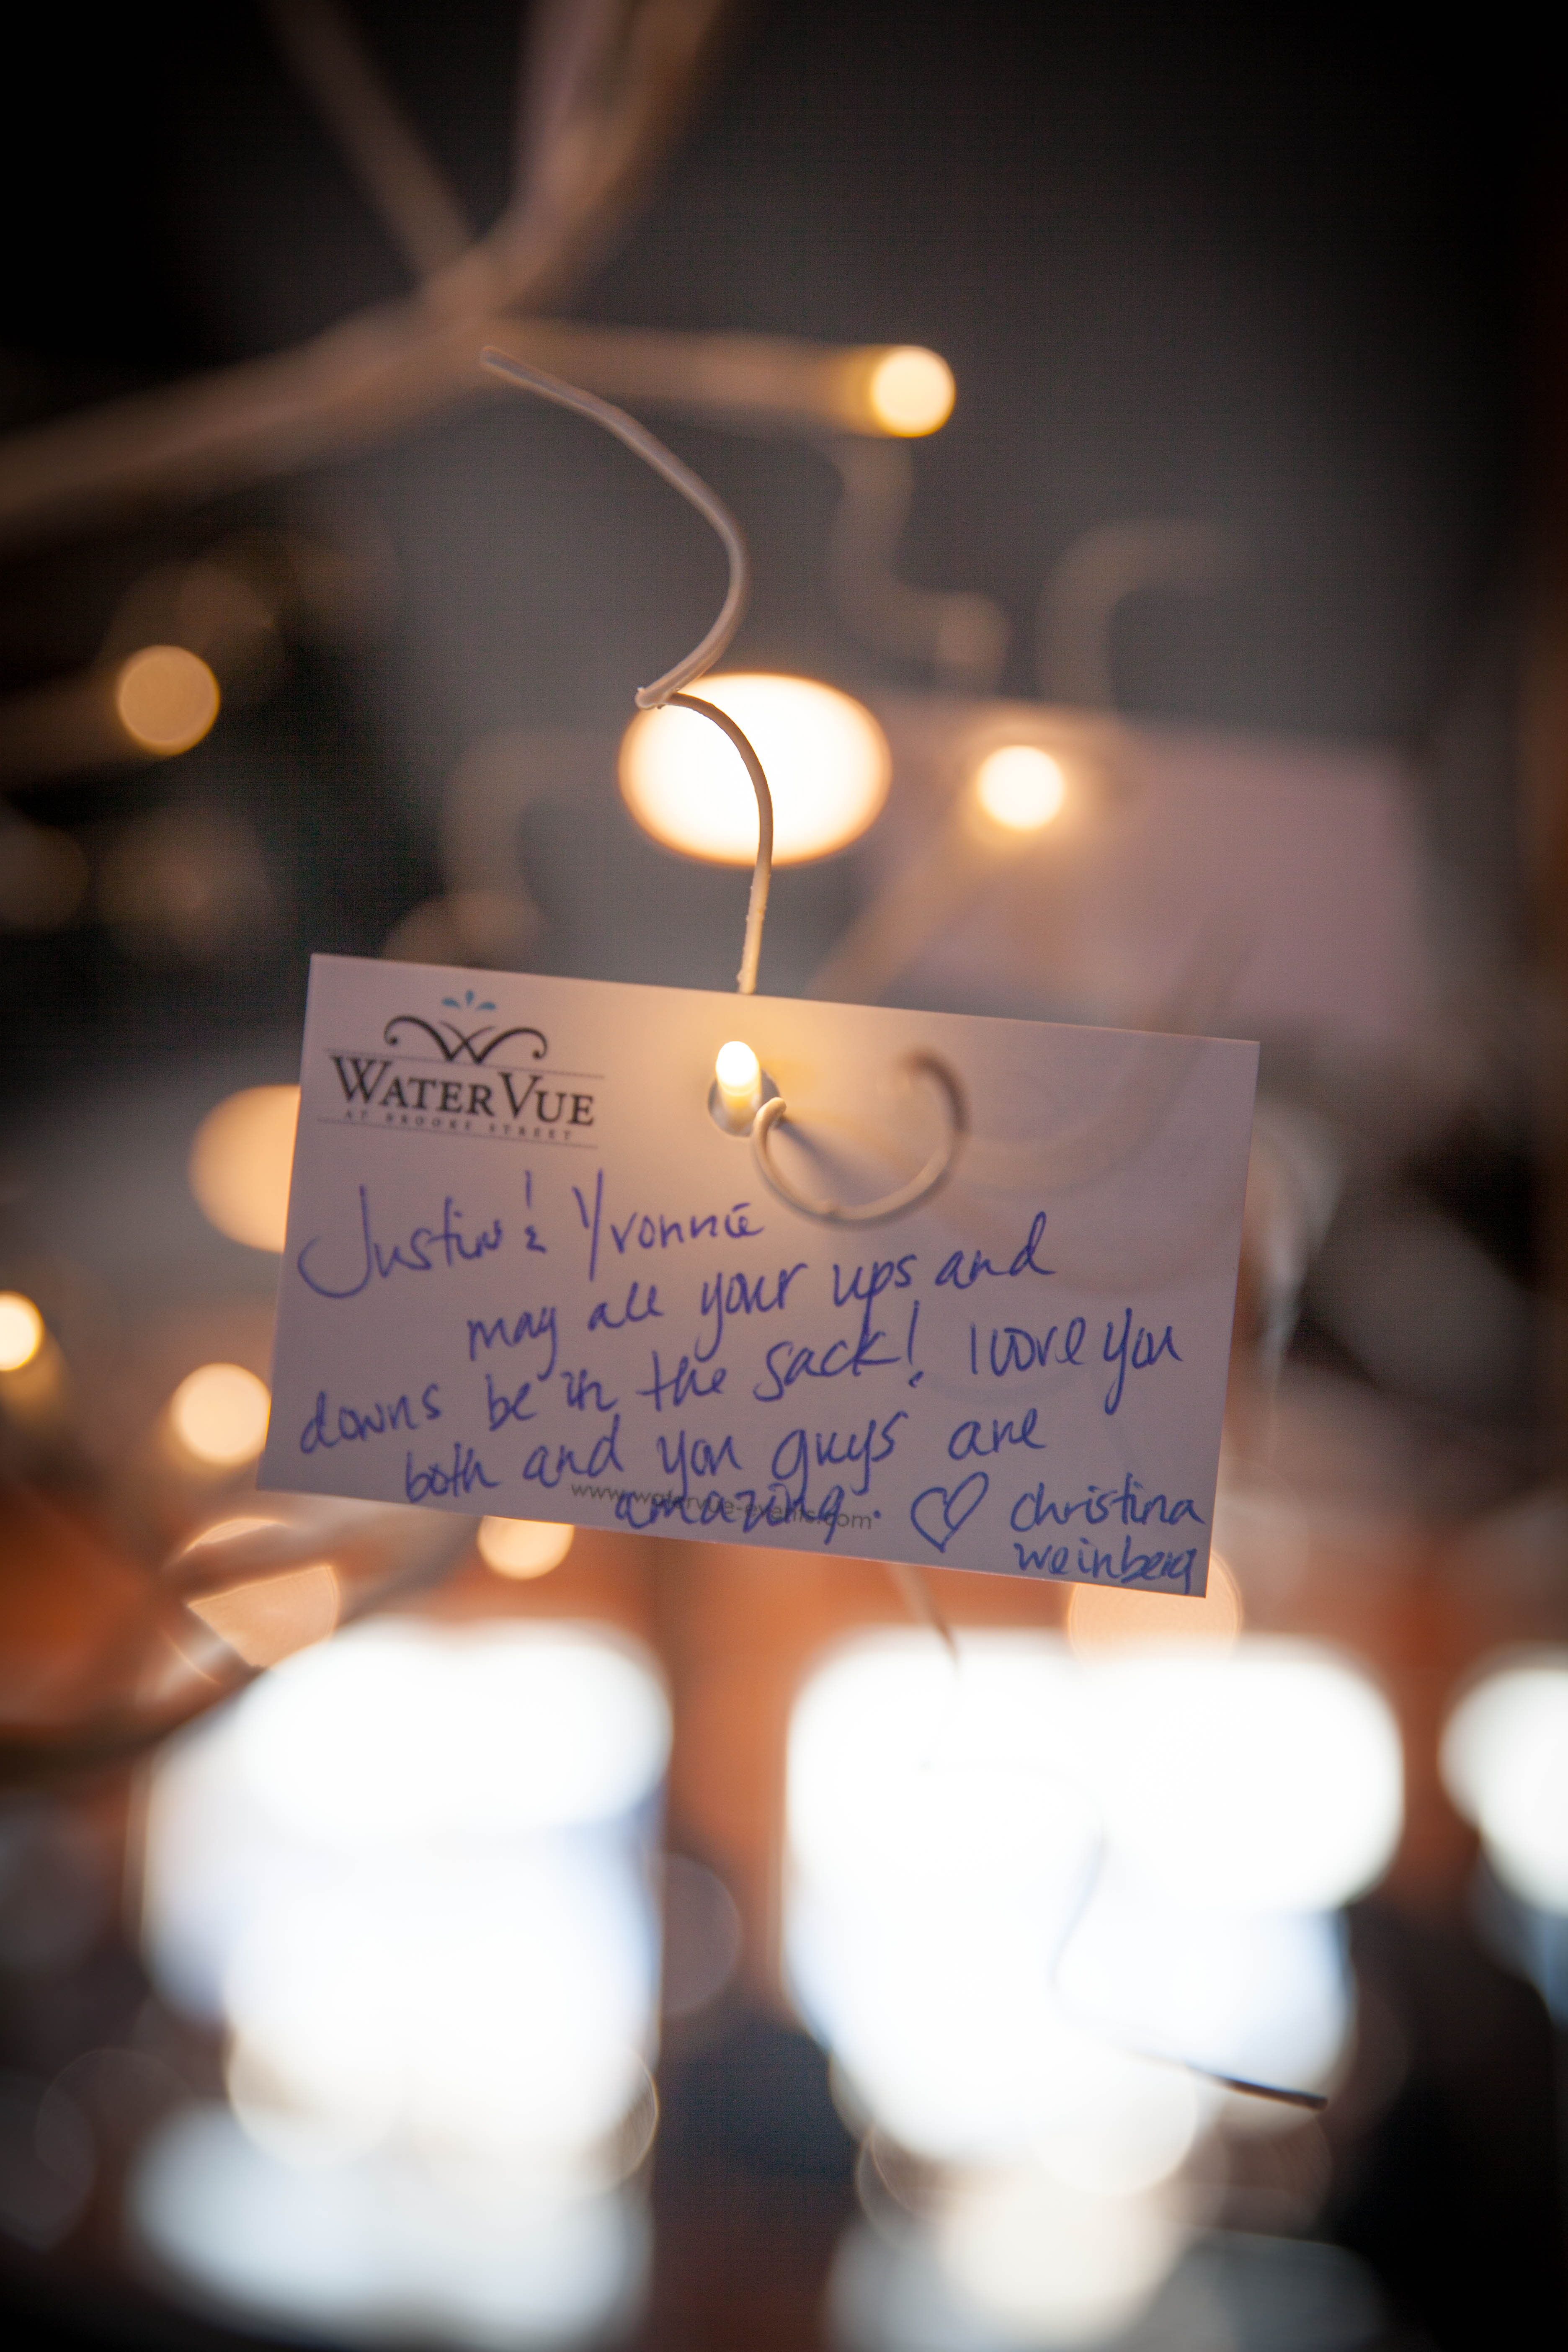 WATERVUE
AT BROOKE STREET
Justin & Yvonne
may all your ups and
downs be in the sack! I love you
both and you guys are
amazing. ♡ christina
weinberg
www.watervue-events.com